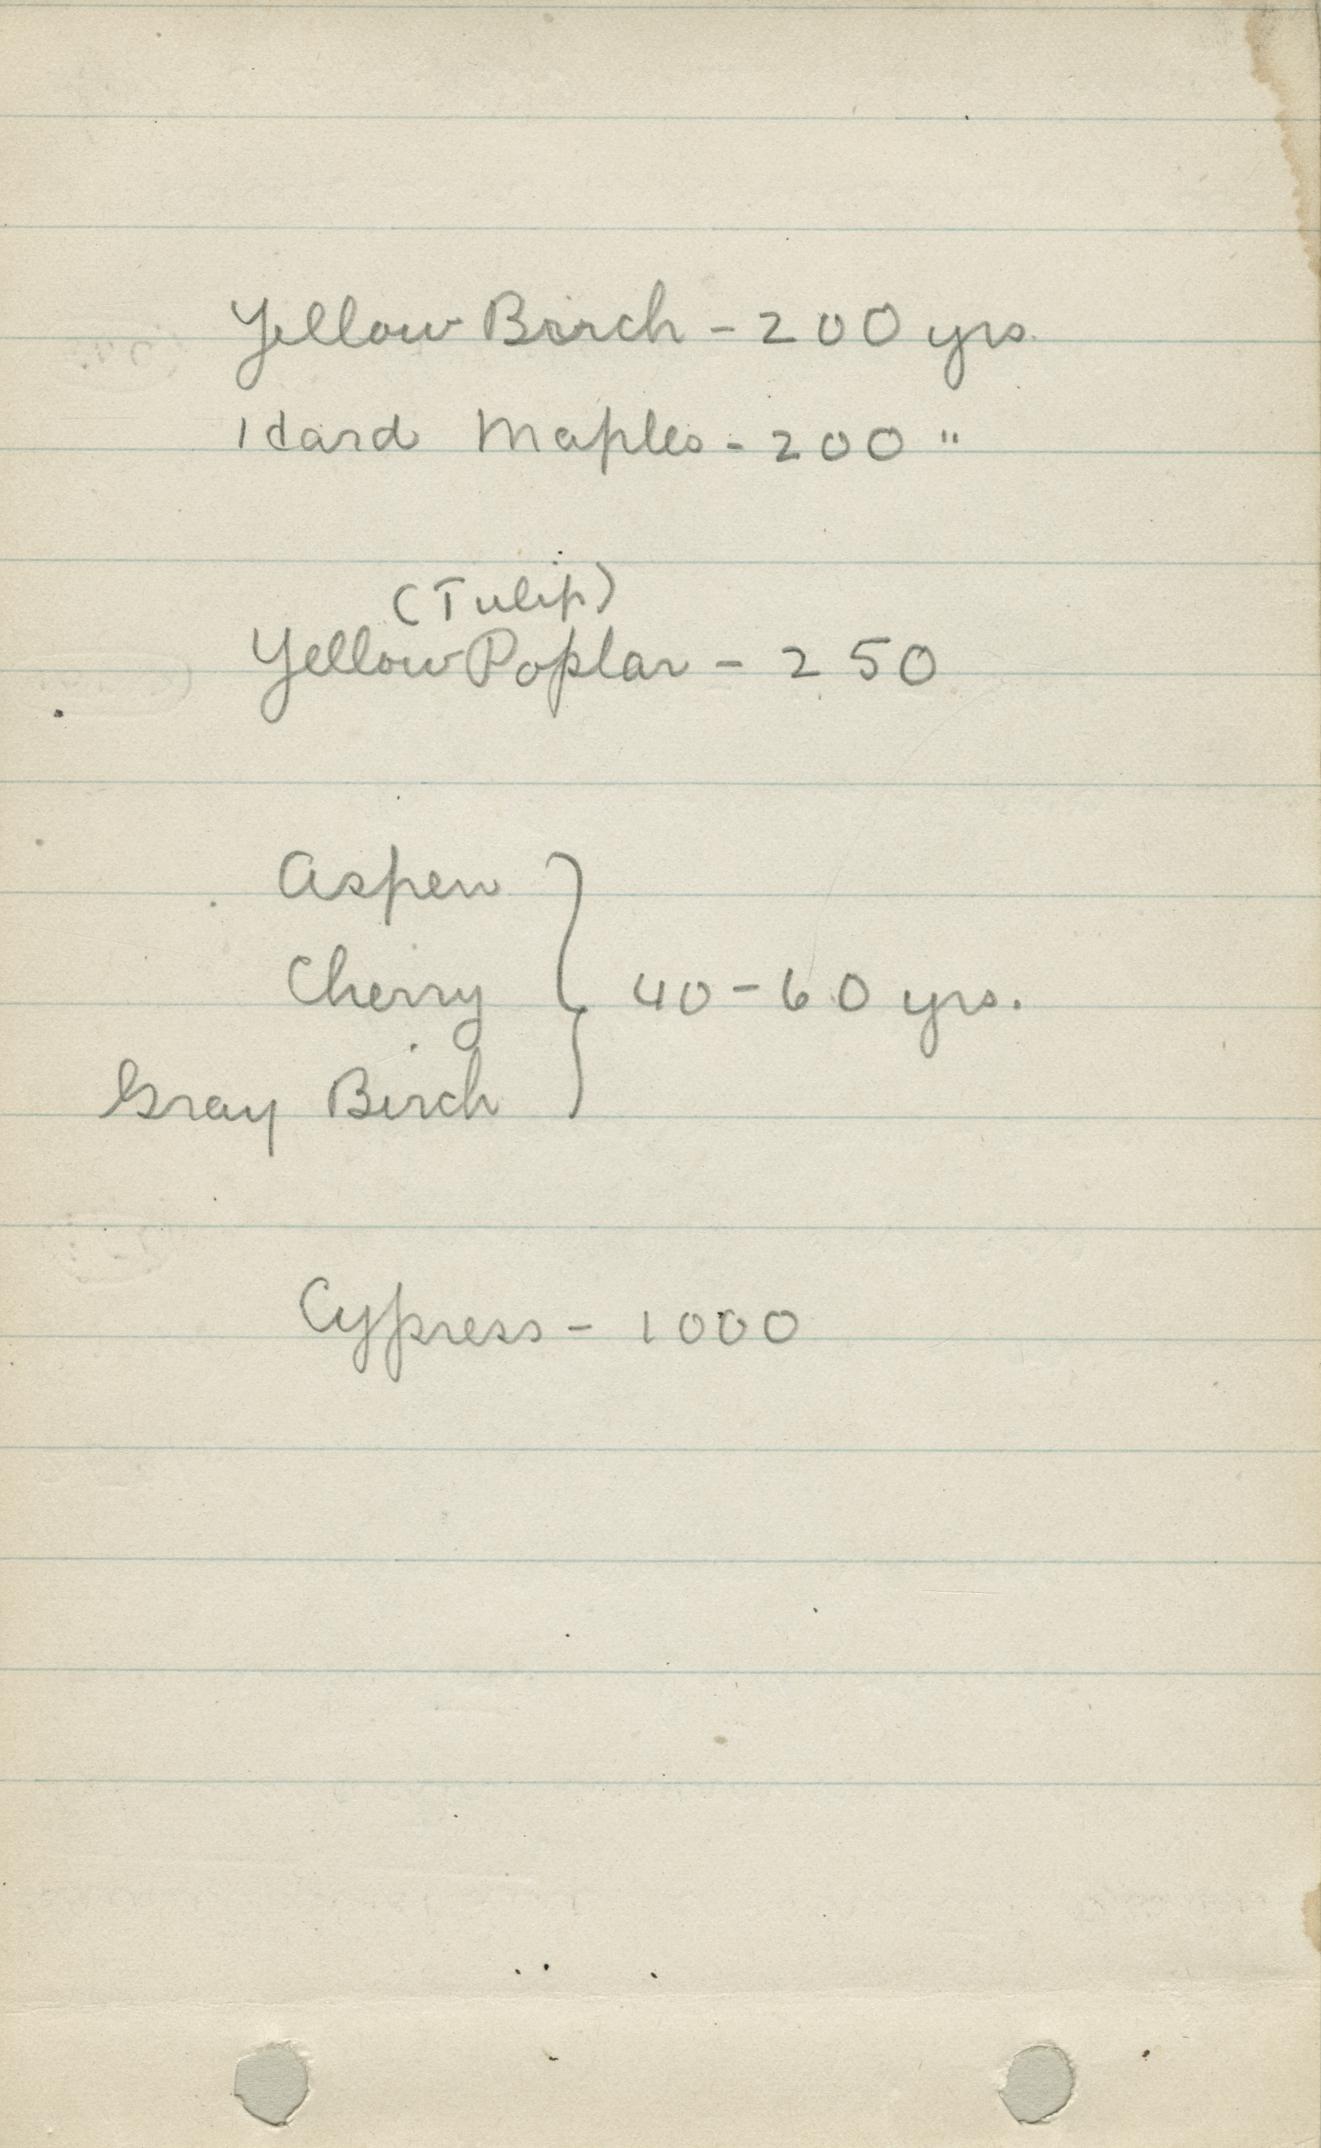 Yellow Birch - 200 yrs.
Hard Maples - 200 "
(Tulip)
Yellow Poplar - 250
Aspen
Cherry } 40-60 yrs.
Gray Birch
Cypress - 1000